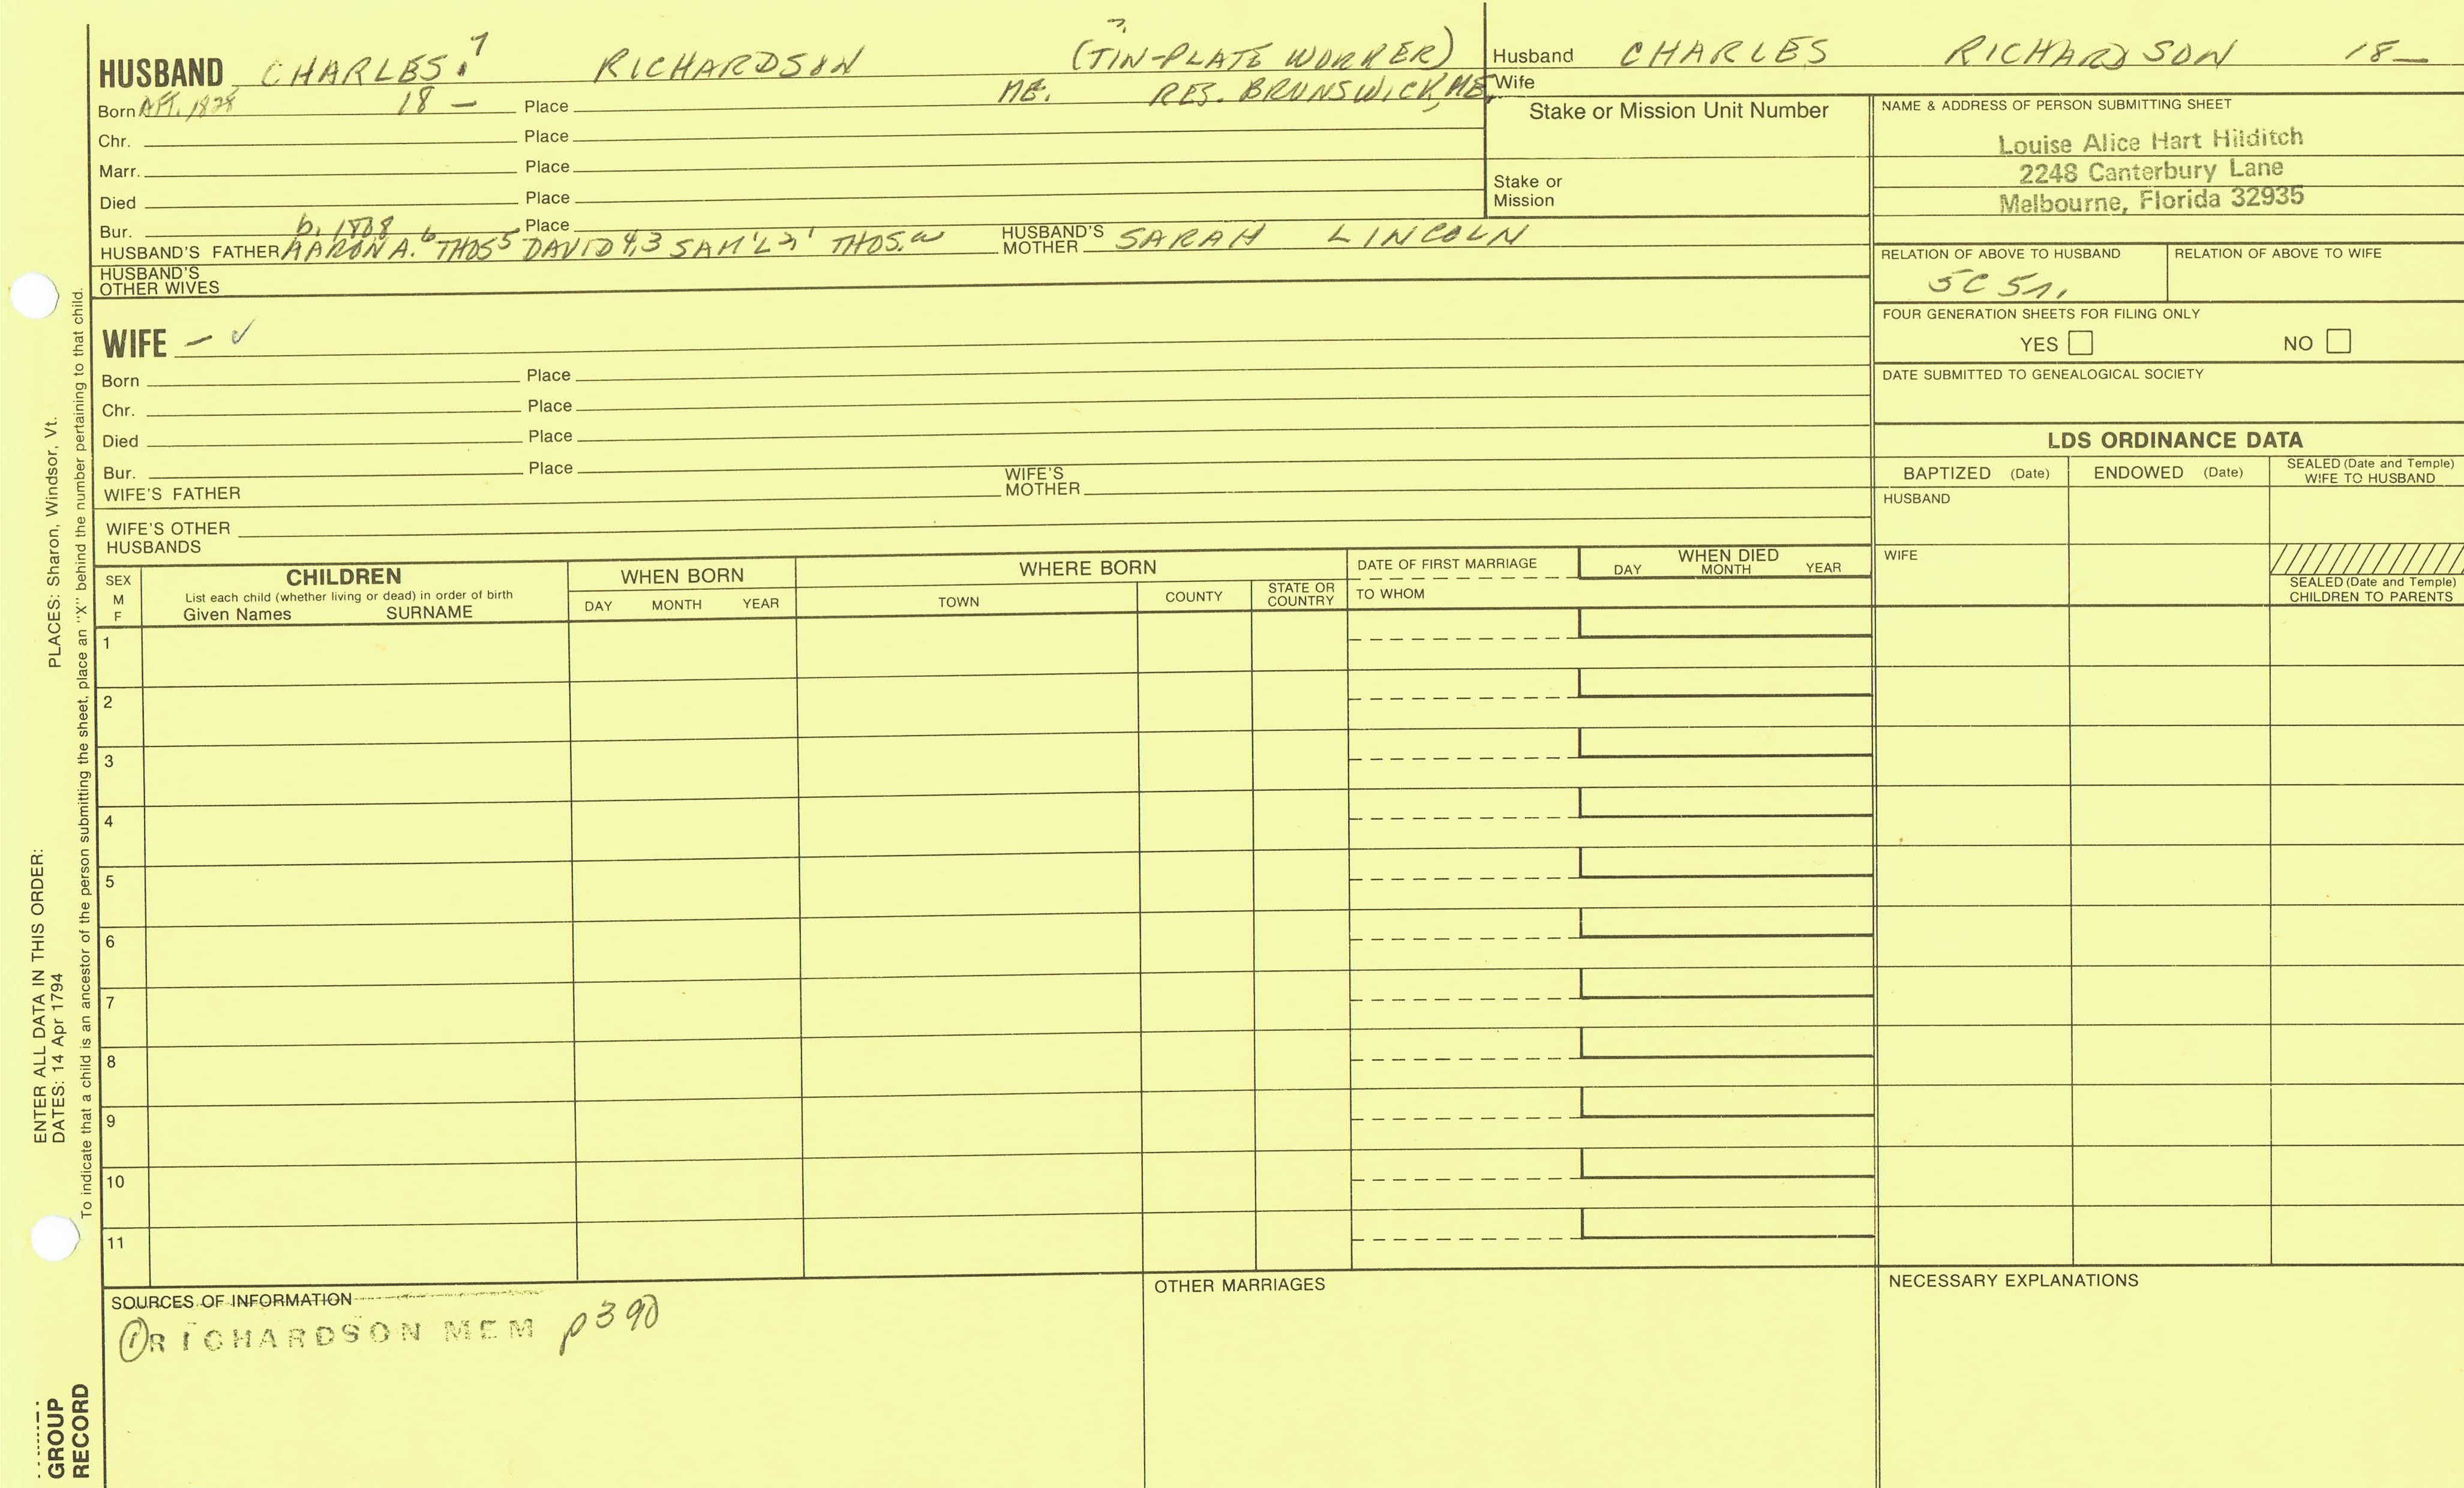 HUSBAND CHARLES.7 RICHARDSON (TIN-PLATE WORKER)
Born AFT. 1828 18 — Place ME. RES. BRUNSWICK, ME.
Chr. Place
Marr. Place
Died Place
Bur. Place
b. 1808
HUSBAND'S FATHER AARON A.6 THOS5 DAVID4,3 SAM'L2,1 THOS.w HUSBAND'S MOTHER SARAH LINCOLN
HUSBAND'S OTHER WIVES
Husband CHARLES RICHARDSON 18—
Wife
Stake or Mission Unit Number
Stake or Mission
NAME & ADDRESS OF PERSON SUBMITTING SHEET
Louise Alice Hart Hilditch
2248 Canterbury Lane
Melbourne, Florida 32935
RELATION OF ABOVE TO HUSBAND RELATION OF ABOVE TO WIFE
5C 5r.
FOUR GENERATION SHEETS FOR FILING ONLY
YES NO
DATE SUBMITTED TO GENEALOGICAL SOCIETY
WIFE — ✓
Born Place
Chr. Place
Died Place
Bur. Place
WIFE'S FATHER WIFE'S MOTHER
WIFE'S OTHER HUSBANDS
LDS ORDINANCE DATA
BAPTIZED (Date) ENDOWED (Date) SEALED (Date and Temple) WIFE TO HUSBAND
HUSBAND
WIFE
SEALED (Date and Temple) CHILDREN TO PARENTS
SEX M F
CHILDREN
List each child (whether living or dead) in order of birth
Given Names SURNAME
WHEN BORN
DAY MONTH YEAR
WHERE BORN
TOWN COUNTY STATE OR COUNTRY
DATE OF FIRST MARRIAGE
TO WHOM
WHEN DIED
DAY MONTH YEAR
1
2
3
4
5
6
7
8
9
10
11
SOURCES OF INFORMATION
① RICHARDSON MEM p390
OTHER MARRIAGES
NECESSARY EXPLANATIONS
ENTER ALL DATA IN THIS ORDER:
DATES: 14 Apr 1794 PLACES: Sharon, Windsor, Vt.
To indicate that a child is an ancestor of the person submitting the sheet, place an "X" behind the number pertaining to that child.
GROUP
RECORD